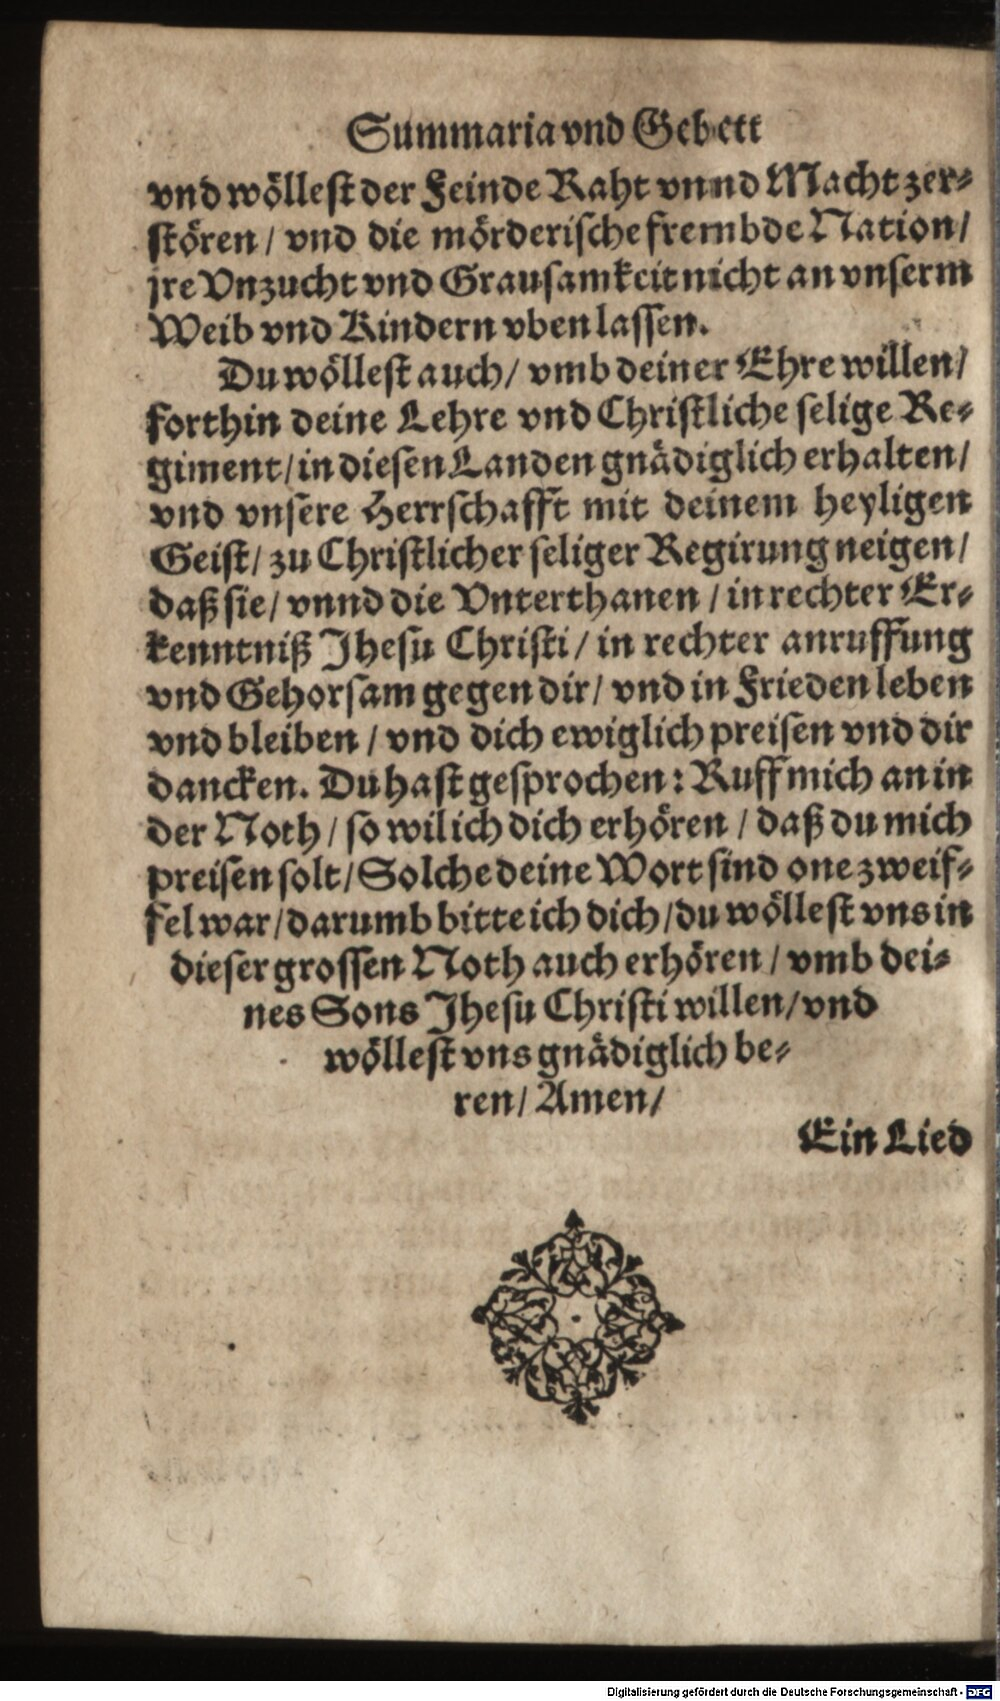 Summaria vnd Gebett
vnd wöllest der Feinde Raht vnnd Macht zer-
stören / vnd die mörderische frembde Nation /
jre Vnzucht vnd Grausamkeit nicht an vnserm
Weib vnd Kindern vben lassen.
Du wöllest auch / vmb deiner Ehre willen /
forthin deine Lehre vnd Christliche selige Re-
giment / in diesen Landen gnädiglich erhalten /
vnd vnsere Herrschafft mit deinem heyligen
Geist / zu Christlicher seliger Regirung neigen /
daß sie / vnnd die Vnterthanen / in rechter Er-
kenntniß Jhesu Christi / in rechter anruffung
vnd Gehorsam gegen dir / vnd in Frieden leben
vnd bleiben / vnd dich ewiglich preisen vnd dir
dancken. Du hast gesprochen: Ruff mich an in
der Noth / so wil ich dich erhören / daß du mich
preisen solt / Solche deine Wort sind one zweif-
fel war / darumb bitte ich dich / du wöllest vns in
dieser grossen Noth auch erhören / vmb dei-
nes Sons Jhesu Christi willen / vnd
wöllest vns gnädiglich be-
ren / Amen /
Ein Lied
Digitalisierung gefördert durch die Deutsche Forschungsgemeinschaft - DFG